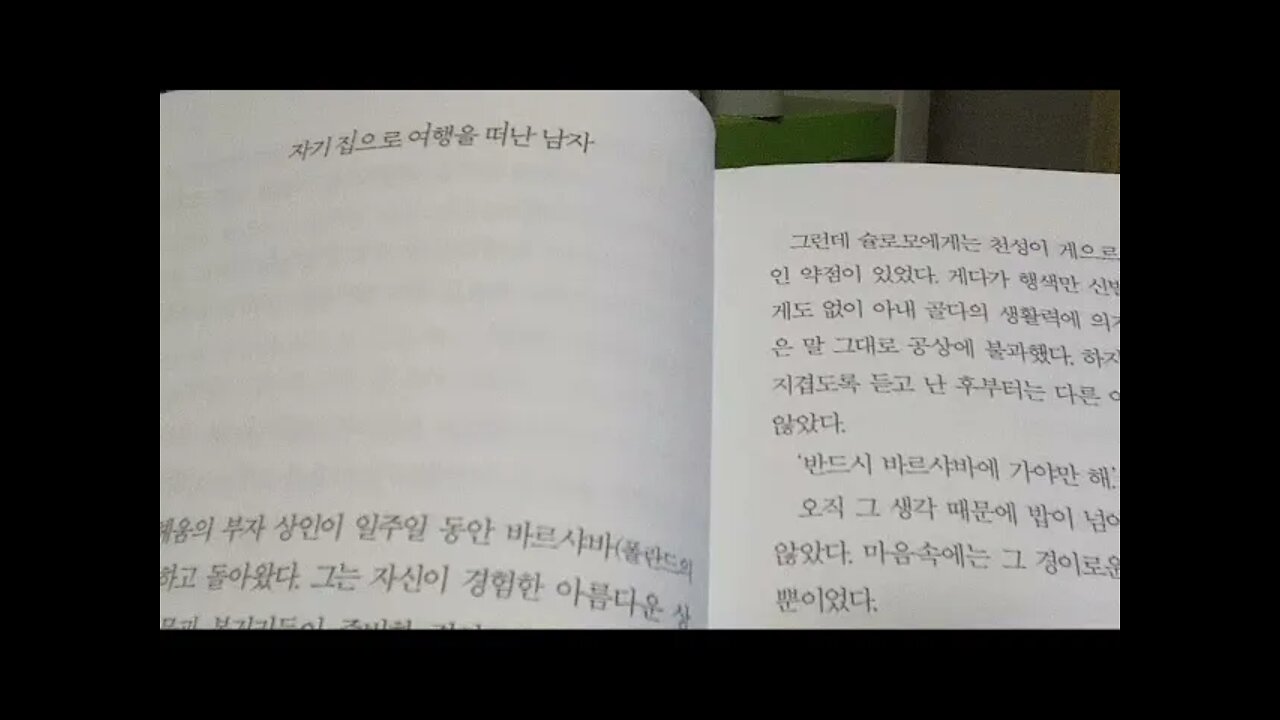 자기 집으로 여행을 떠난 남자
헤움의 부자 상인이 일주일 동안 바르샤바(폴란드의
하고 돌아왔다. 그는 자신이 경험한 아름다운 상
그런데 슐로모에게는 천성이 게으르
인 약점이 있었다. 게다가 행색만 신반
게도 없이 아내 골다의 생활력에 의지
은 말 그대로 공상에 불과했다. 하지
지겹도록 듣고 난 후부터는 다른 이
않았다.
'반드시 바르샤바에 가야만 해.'
오직 그 생각 때문에 밥이 넘어
않았다. 마음속에는 그 경이로운
뿐이었다.